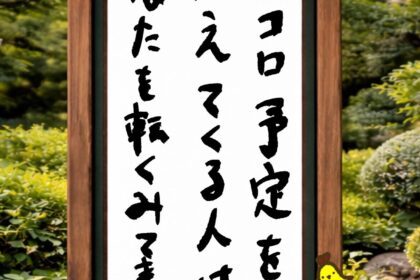 コロ予定を
えてくる人は
なたを軽くみてま